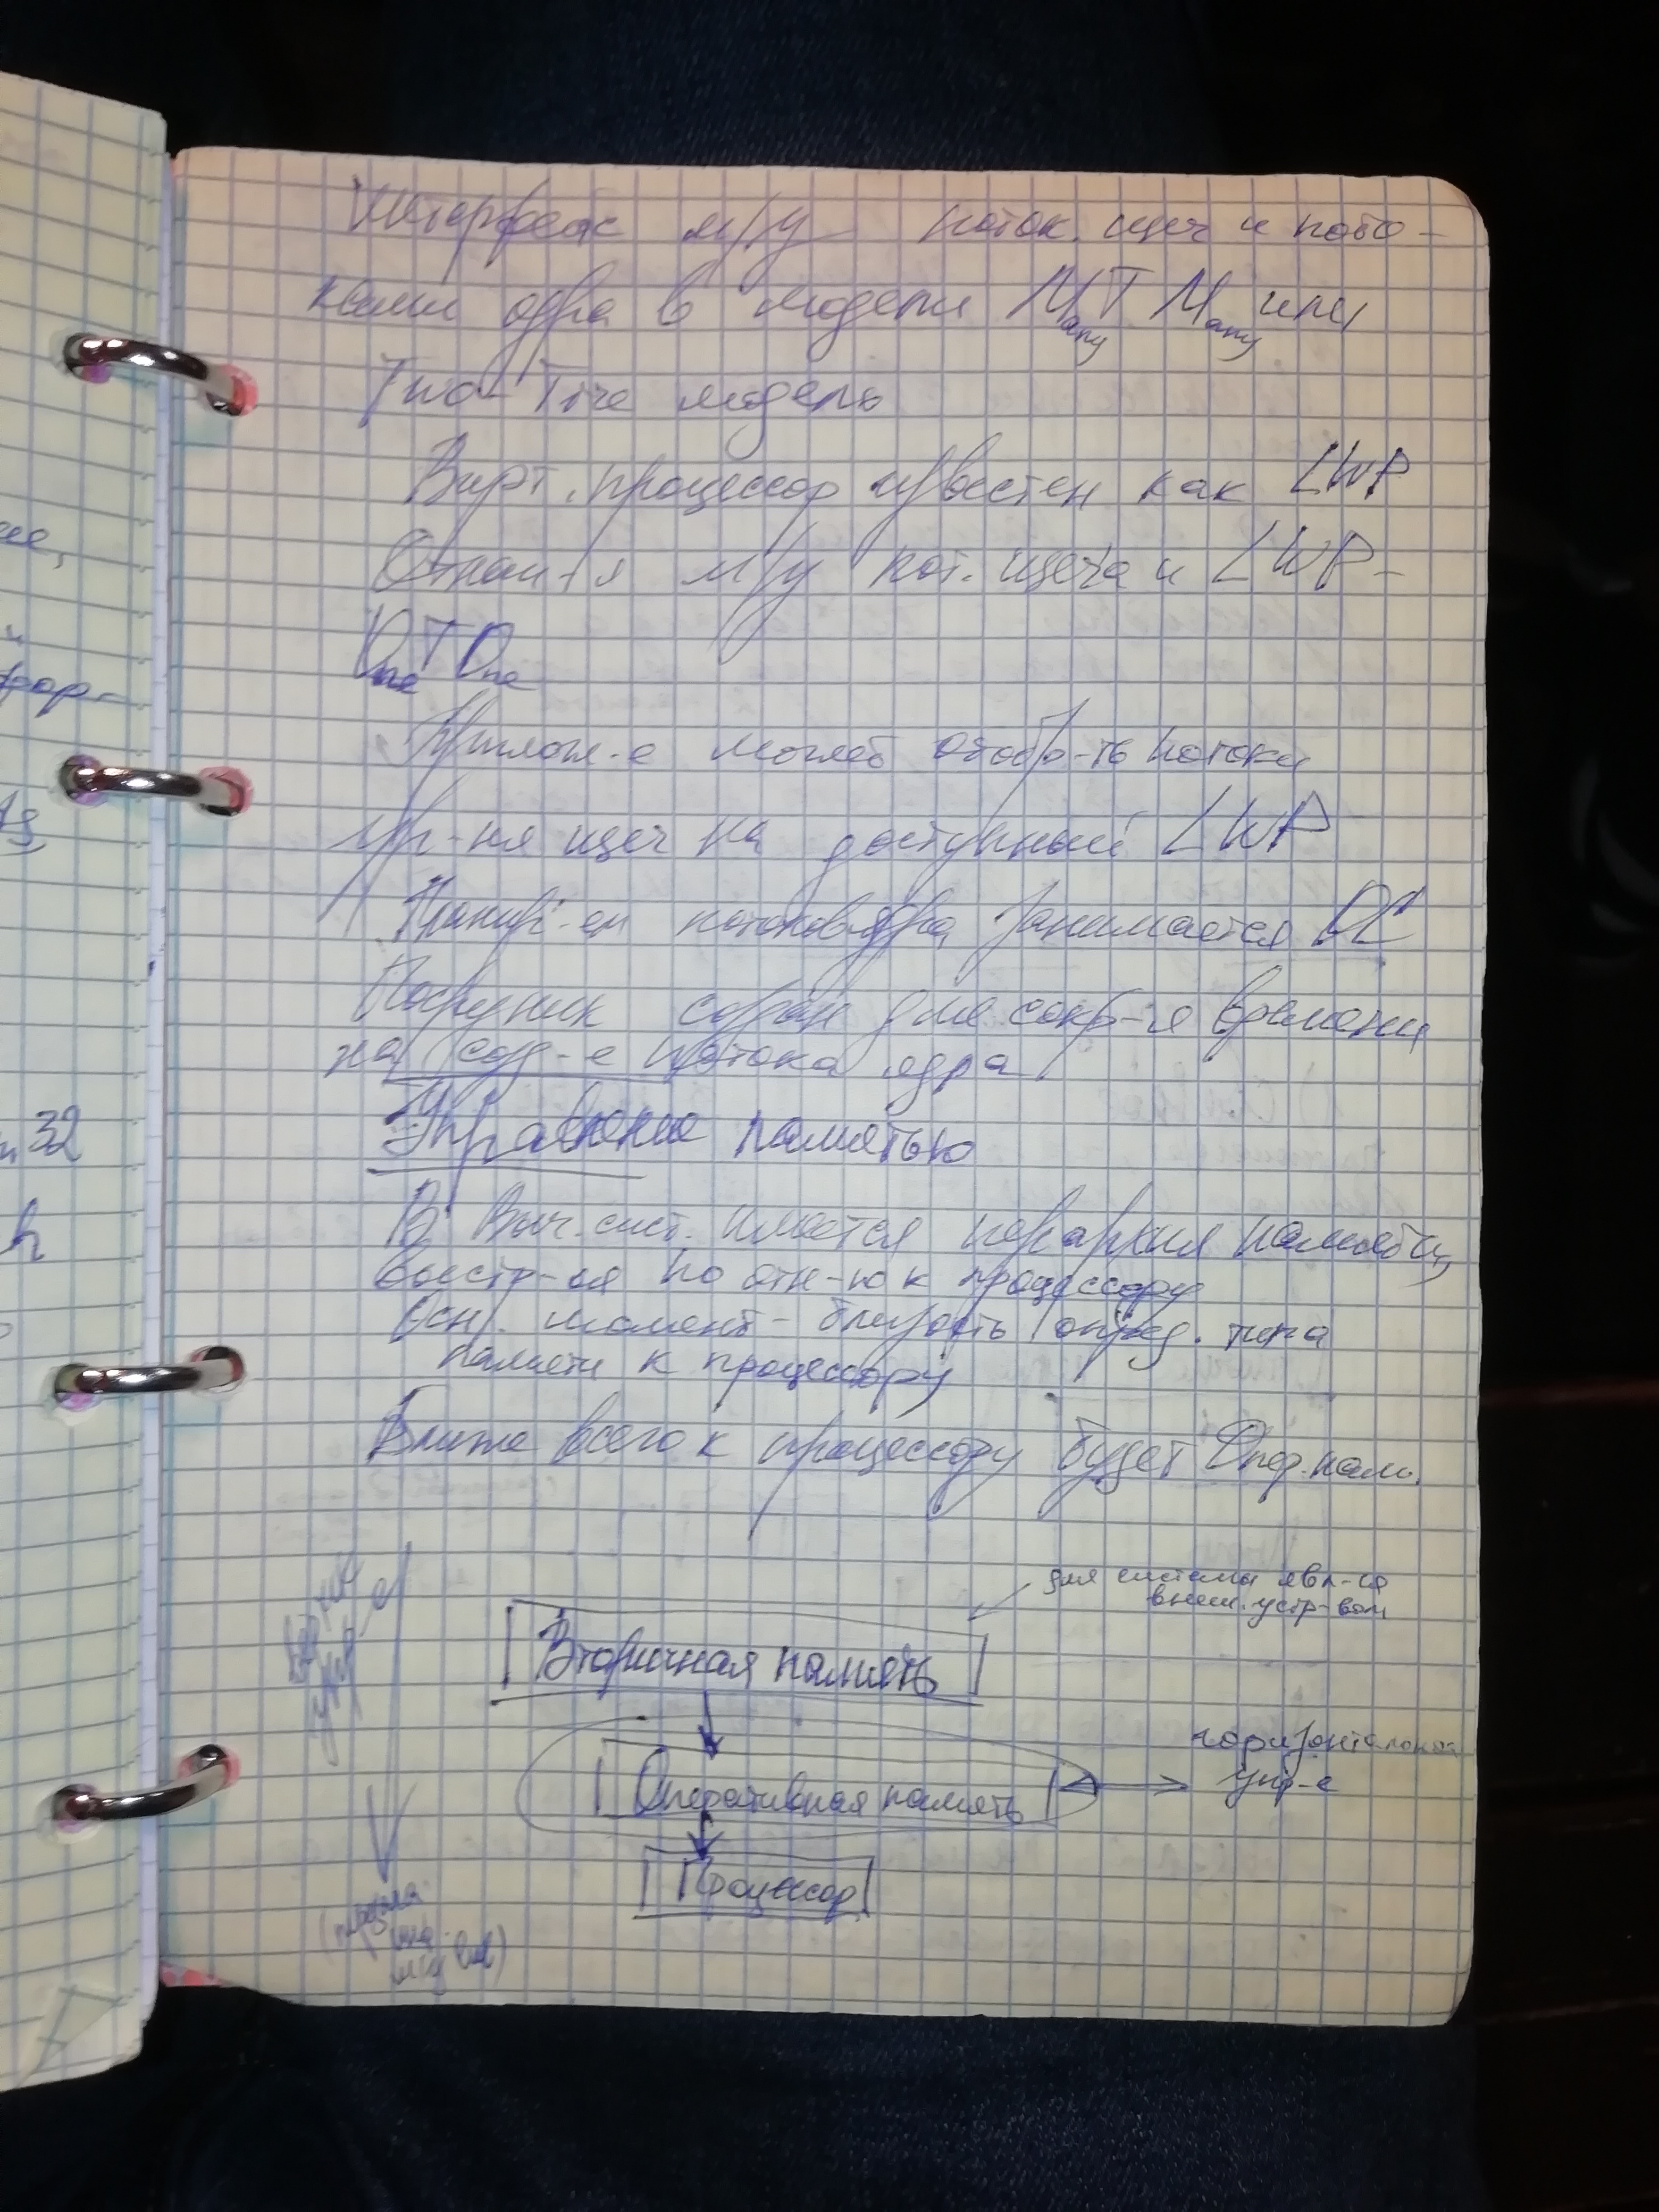 Интерфейс м/у поток. и пото-
ками ядра в модели Many T Many или
Two-Tire модель
Вирт. процессор известен как LWP
м/у пот. и LWP -
One T One
Прилож-е может отобр-ть потоки
ур-ня на доступный LWP
Планир-ем потоков ядра занимается ОС
создан для сокр-я времени
на созд-е потока ядра
Управление памятью
В выч. сист. имеется иерархия памяти,
выстр-ая по отн-ю к процессору
Осн. момент - близость опред. типа
памяти к процессору
Ближе всего к процессору будет Опер. пам.
для системы явл-ся
внеш. устр-вом
Вторичная память
горизонтальное
упр-е
Оперативная память
Процессор
32
h